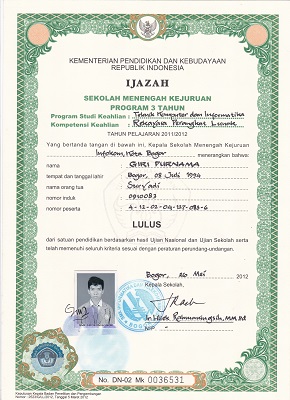 KEMENTERIAN PENDIDIKAN DAN KEBUDAYAAN
REPUBLIK INDONESIA
IJAZAH
SEKOLAH MENENGAH KEJURUAN
PROGRAM 3 TAHUN
Program Studi Keahlian : Teknik Komputer dan Informatika
Kompetensi Keahlian : Rekayasa Perangkat Lunak
TAHUN PELAJARAN 2011/2012
Yang bertanda tangan di bawah ini, Kepala Sekolah Menengah Kejuruan
Infokom, Kota Bogor menerangkan bahwa:
nama : GIRI PURNAMA
tempat dan tanggal lahir : Bogor, 08 Juli 1994
nama orang tua : Suryadi
nomor induk : 0910087
nomor peserta : 4-12-02-04-137-083-6
LULUS
dari satuan pendidikan berdasarkan hasil Ujian Nasional dan Ujian Sekolah serta
telah memenuhi seluruh kriteria sesuai dengan peraturan perundang-undangan.
Bogor, 26 Mei 2012
Kepala Sekolah,
NIP
No. DN-02 Mk 0036531